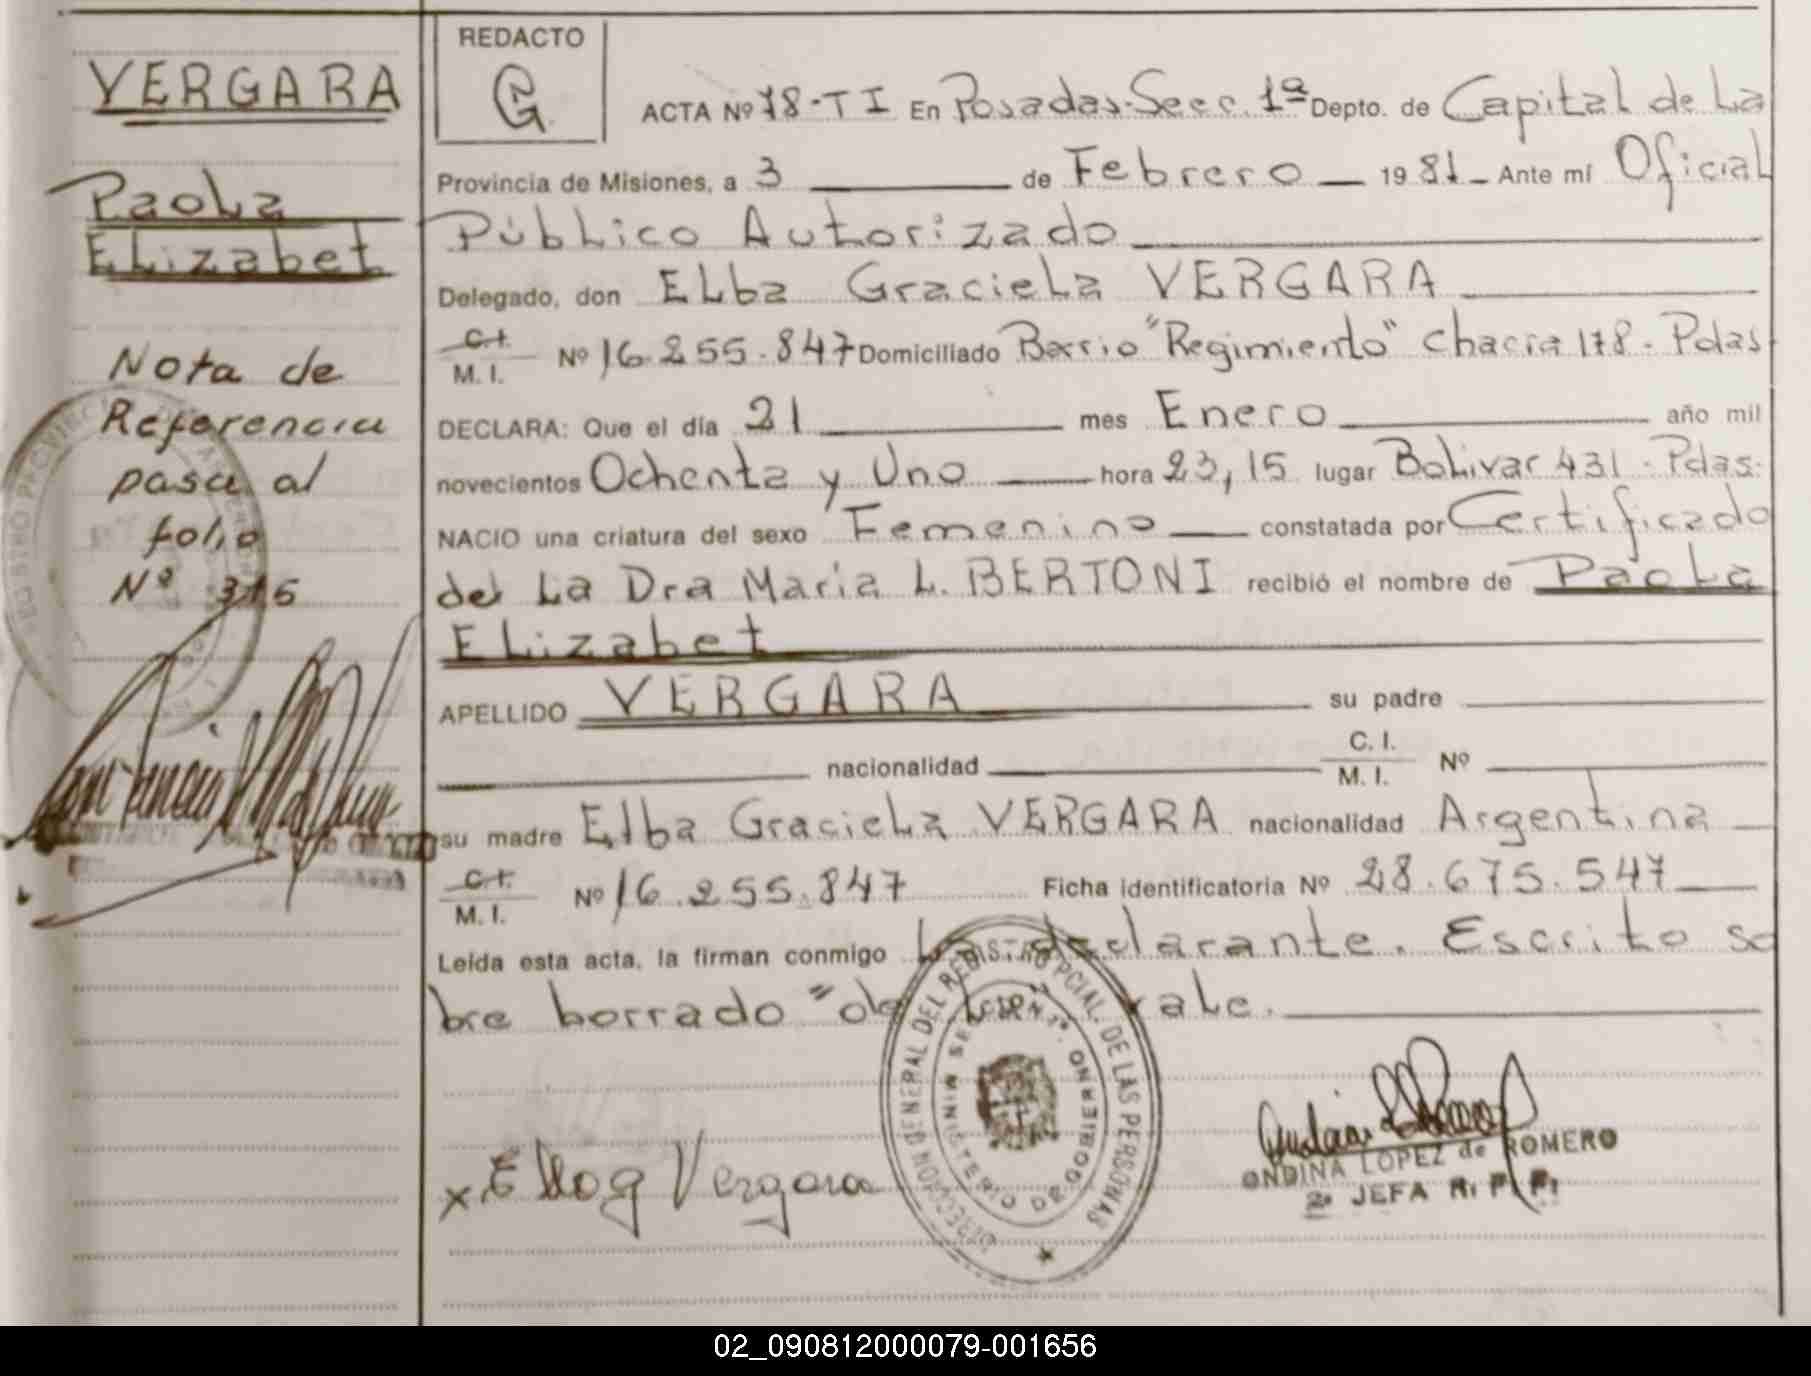 VERGARA
Paola
Elizabet
Nota de
Referencia
pasa al
folio
Nº 315
REDACTO
ACTA Nº 78-TI En Posadas-Secc. 1ª Depto. de Capital de La
Provincia de Misiones, a 3 de Febrero 1981 Ante mí Oficial
Público Autorizado
Delegado, don Elba Graciela VERGARA
C.I. M. I. Nº 16.255.847 Domiciliado Barrio "Regimiento" Chacra 178 - Pdas
DECLARA: Que el día 21 mes Enero año mil
novecientos Ochenta y Uno hora 23,15 lugar Bolivar 431 - Pdas.
NACIO una criatura del sexo Femenino constatada por Certificado
de La Dra Maria L. BERTONI recibió el nombre de Paola
Elizabet
APELLIDO VERGARA su padre
nacionalidad C. I. M. I. Nº
su madre Elba Graciela VERGARA nacionalidad Argentina
C.I. M. I. Nº 16.255.847 Ficha identificatoria Nº 28.675.547
Leída esta acta, la firman conmigo La declarante. Escrito so
bre borrado "de La" vale.
Vergara
DIRECCION GENERAL DEL REGISTRO PCIAL. DE LAS PERSONAS
MINISTERIO DE GOBIERNO
ONDINA LOPEZ de ROMERO
2ª JEFA R. P. P.
02_090812000079-001656